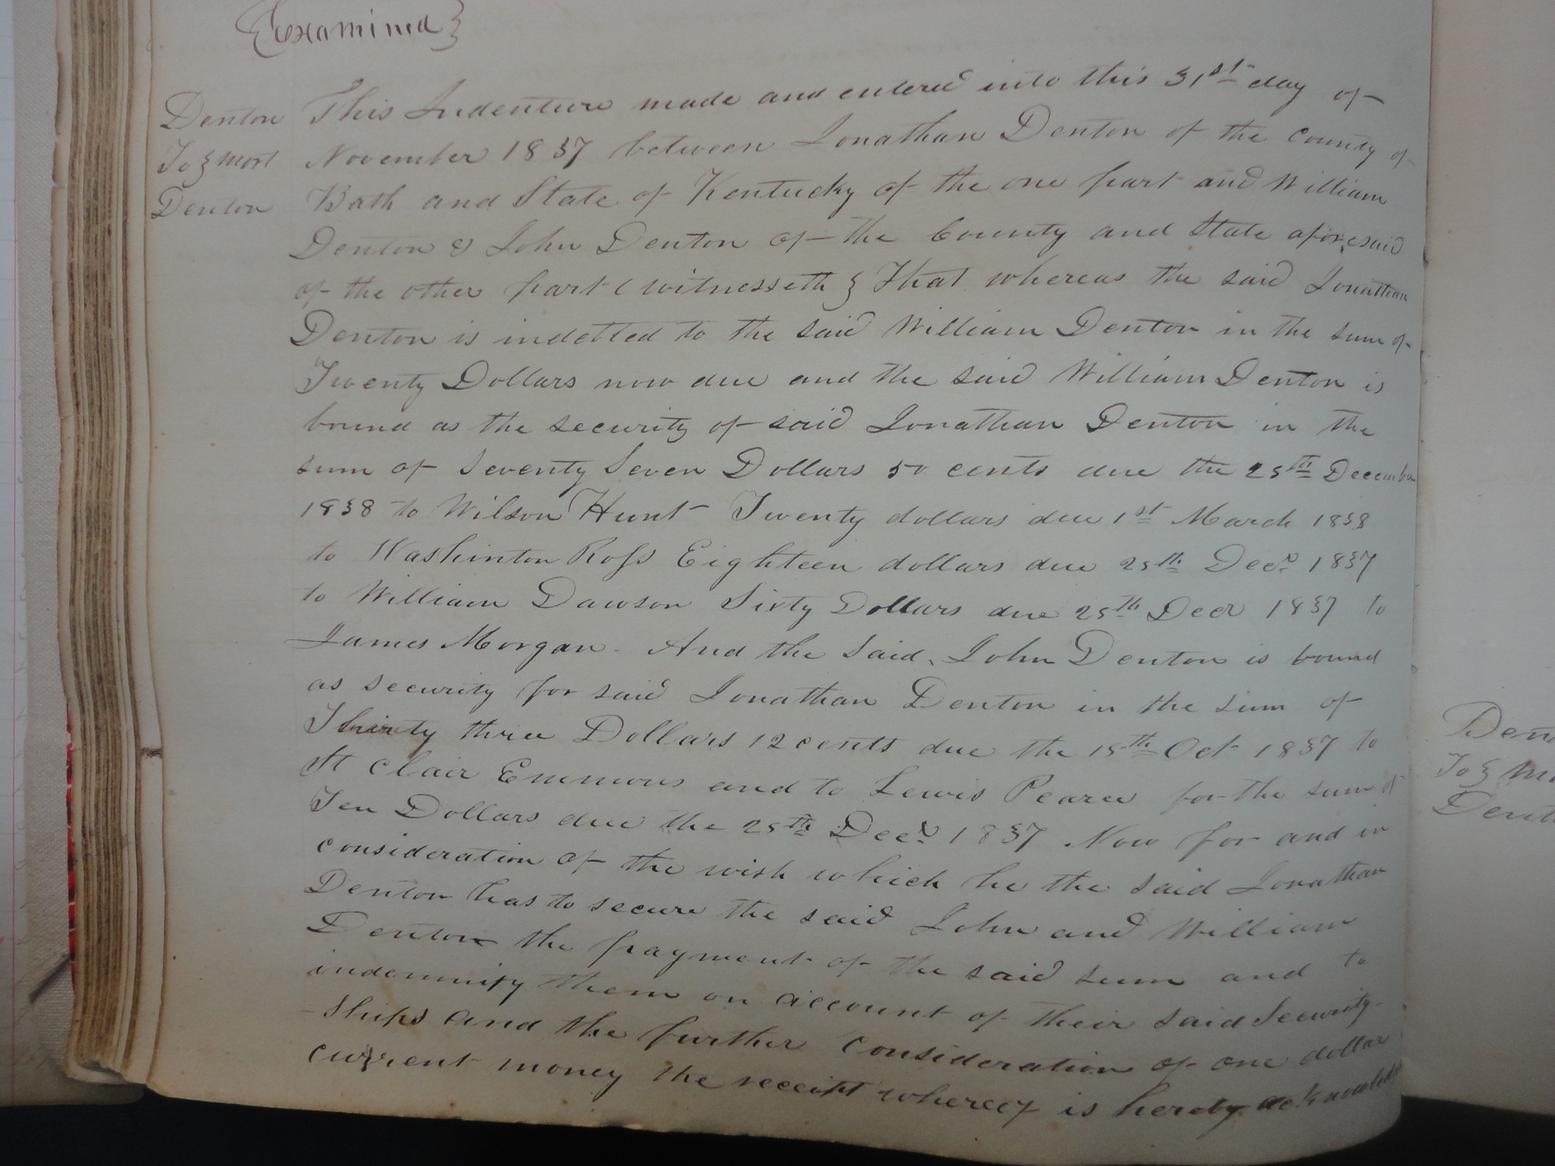 {Examined}
Denton
To } mort
Denton
This Indenture made and entered into this 31st day of
November 1837 between Jonathan Denton of the County of
Bath and State of Kentucky of the one part and William
Denton & John Denton of the County and State aforesaid
of the other part (witnesseth } That whereas the said Jonathan
Denton is indetted to the said William Denton in the sum of
Twenty Dollars now due and the said William Denton is
bound as the security of said Jonathan Denton in the
sum of Seventy Seven Dollars 50 cents due the 25th December
1838 to Wilson Hunt Twenty dollars due 1st March 1838
to Washinton Ross Eighteen dollars due 25th Decr 1837
to William Dawson Sixty Dollars due 25th Decr 1837 to
James Morgan. And the said John Denton is bound
as security for said Jonathan Denton in the sum of
Thirty three Dollars 12 cents due the 15th Oct 1837 to
St Clair Emmons and to Lewis Pearce for the sum of
Ten Dollars due the 25th Decr 1837 Now for and in
consideration of the wish which he the said Jonathan
Denton has to secure the said John and William
Denton the payment of the said sum and to
indemnify them on account of their said Security-
-ships and the further consideration of one dollar
current money the receipt whereof is hereby acknowled
Den
To } Mo
Dent